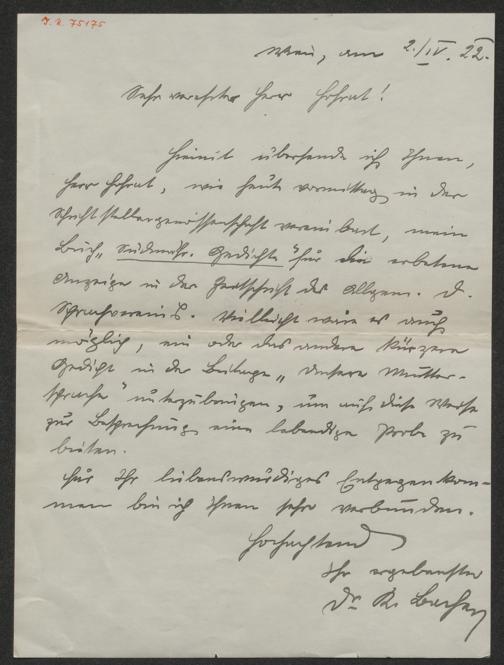 I.N. 75175
Wien, am 2./IV. 22.
Sehr verehrter Herr Hofrat!
Hiemit übersende ich Ihnen,
Herr Hofrat, wie heute vormittag in der
Schriftstellergenossenschaft vereinbart, mein
Buch „Südmähr. Gedichte" für die erbetene
Anzeige in der Zeitschrift des Allgem. D.
Sprachvereins. Vielleicht wäre es auch
möglich, ein oder das andere kürzere
Gedicht in der Beilage „Unsere Mutter-
sprache" unterzubringen, um auf diese Weise
zur Besprechung eine lebendige Probe zu
bieten.
Für Ihr liebenswürdiges Entgegenkom-
men bin ich Ihnen sehr verbunden.
Hochachtend
Ihr ergebenster
Dr. K. Bacher